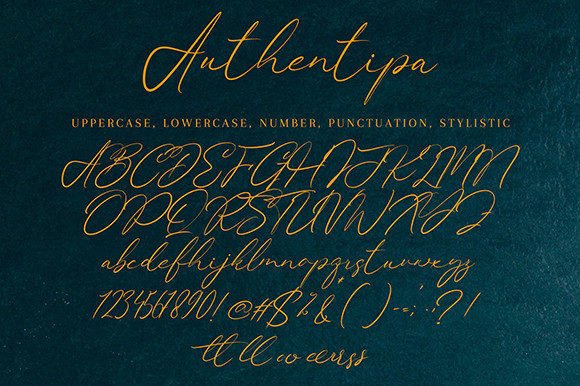 Authentipa
UPPERCASE, LOWERCASE, NUMBER, PUNCTUATION, STYLISTIC
ABCDEFGHIJKLMN
OPQRSTUVWXYZ
abcdefghijklmnopqrstuvwxyz
1234567890! @#$%^&*() -=;:,.?/
tt ll oo ee rr ss